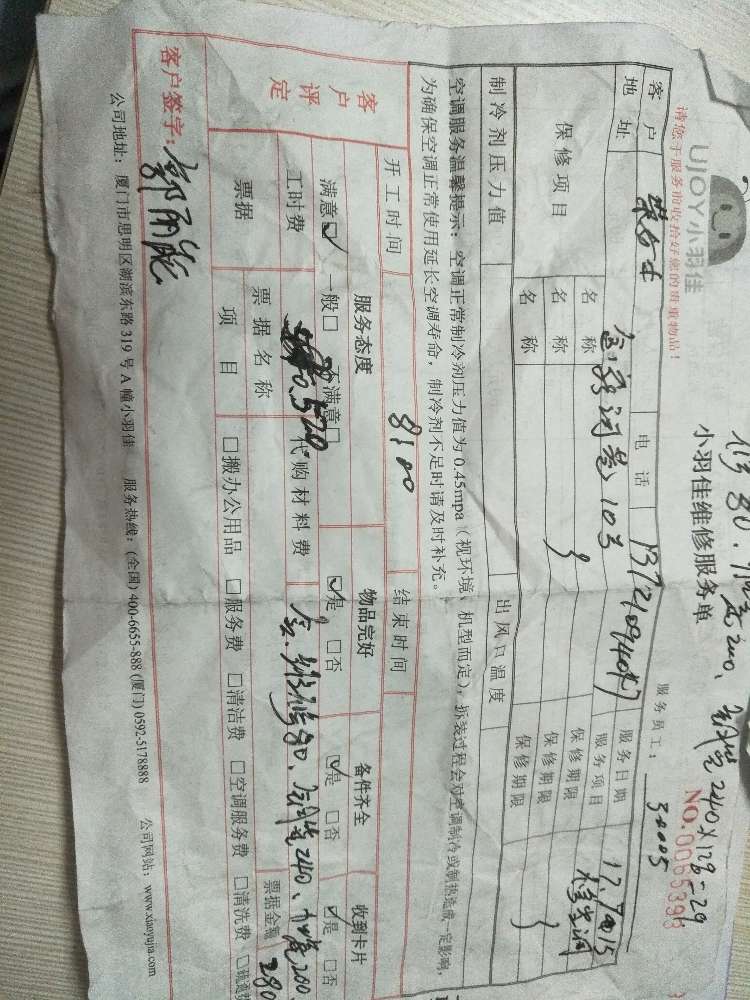 修80.加氨200、铜管240×128-29
UJOY小羽佳
小羽佳维修服务单
NO.0065399
请您于服务前收拾好您的贵重物品！
服务员工：
30005
客户
电话
服务日期
17.7
15
地址
103
服务项目
修空调
保修项目
名称
保修期限
名称
保修期限
名称
保修期限
制冷剂压力值
出风口温度
空调服务温馨提示：空调正常制冷剂压力值为0.45mpa（视环境、机型而定），拆装过程会对空调制冷或制热造成一定影响，
为确保空调正常使用延长空调寿命，制冷剂不足时请及时补充。
开工时间
8:00
结束时间
客户评定
服务态度
物品完好
备件齐全
收到卡片
满意☑ 一般□ 不满意□
☑是 □否
☑是 □否
☑是 □否
工时费
520
代购材料费
修80、铜管240、加氨200
票据
票据名称
票据金额
280
项目
□搬办公用品 □服务费 □清洁费 □空调服务费 □清洗费
客户签字：郭丽
公司地址：厦门市思明区湖滨东路319号A幢小羽佳 服务热线：(全国) 400-6655-888 (厦门) 0592-5178888 公司网站：www.xiaoyujia.com